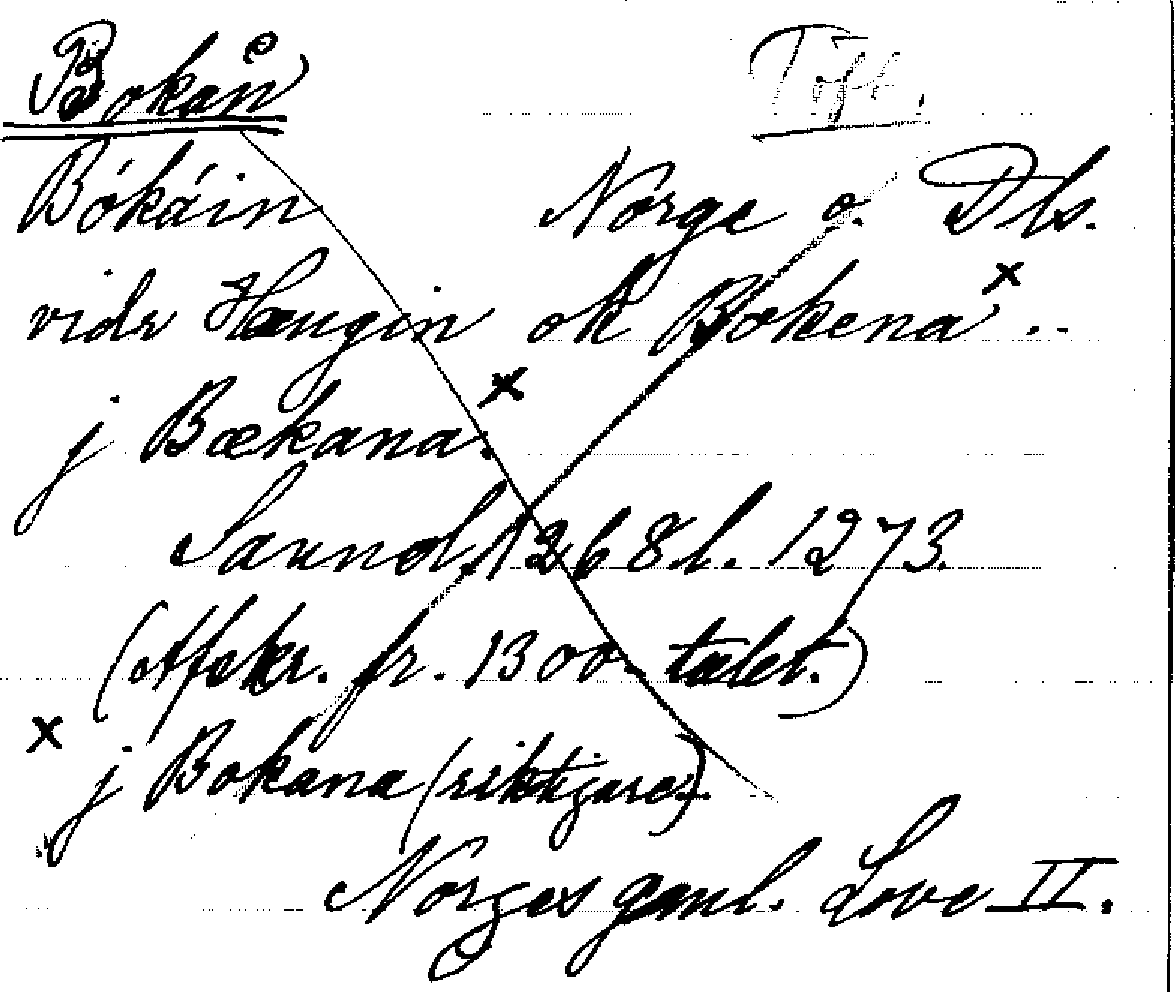 Bokån Töft.
Bókáin Norge o. Dls.
vidr Hængin ok Bokena x ..
j Bækana. x
Saund. 1268 l. 1273.
(Afskr. fr. 1300-talet.)
x j Bokana (riktigare)
Norges gml. Love II.